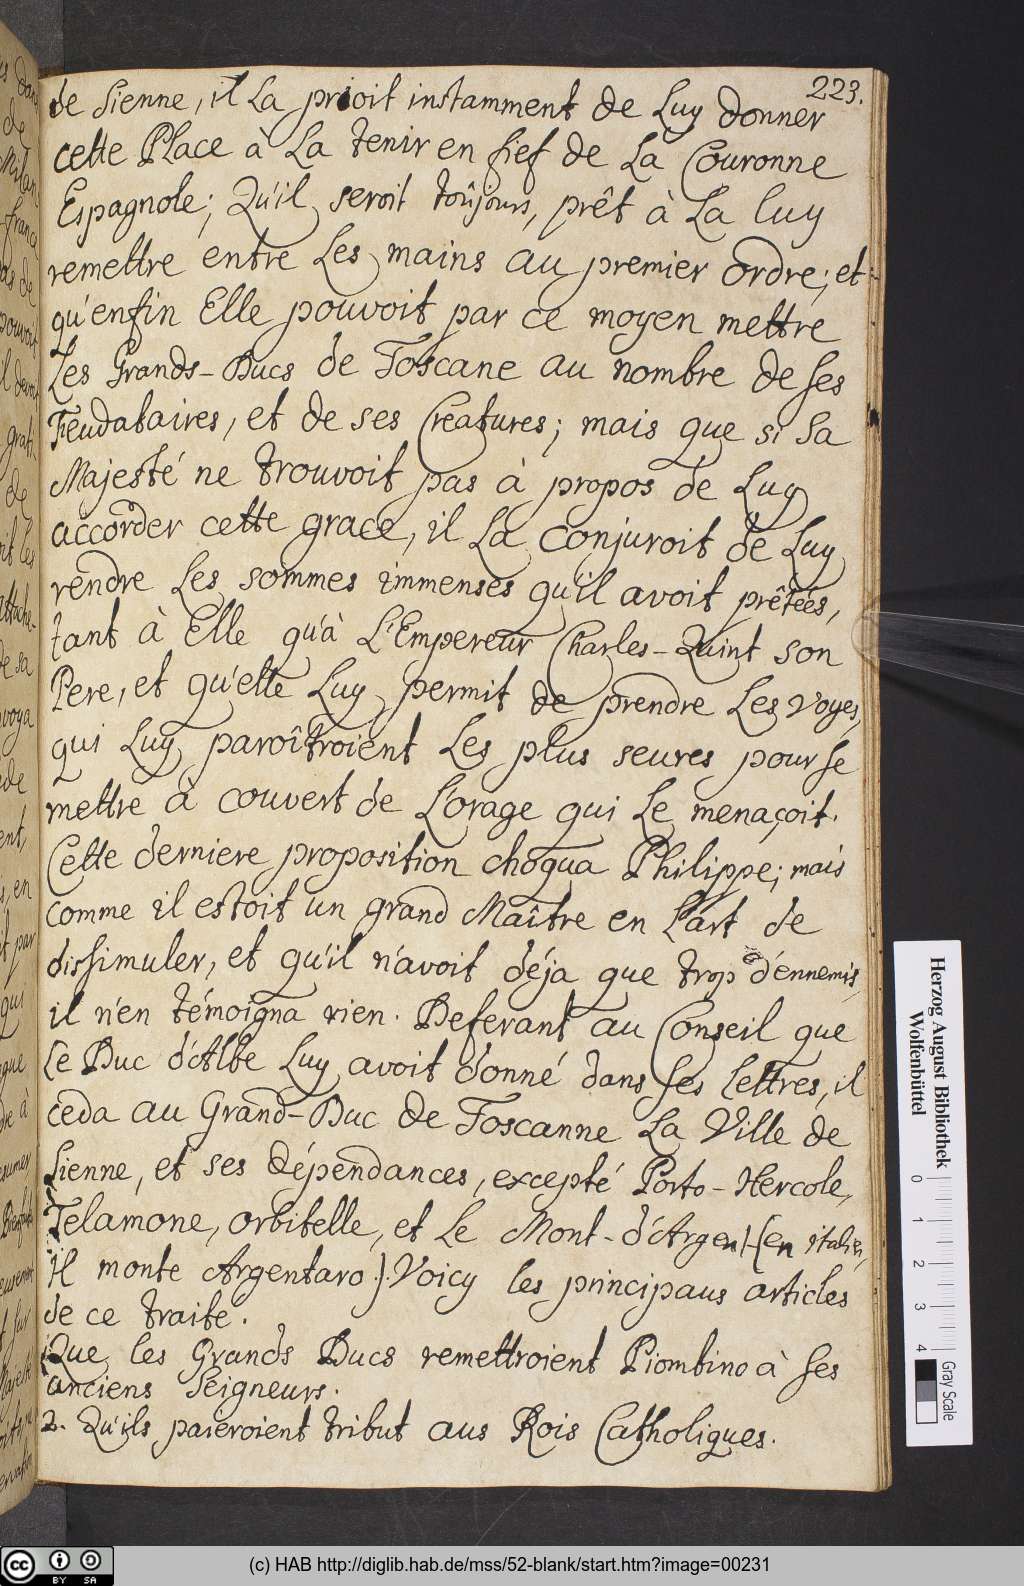 223.
de Sienne, il La prioit instamment de Luy donner
cette Place à La tenir en fief de La Couronne
Espagnole; Qu'il seroit toûjours, prêt à La luy
remettre entre Les mains au premier ordre; et
qu'enfin Elle pouvoit par ce moyen mettre
Les Grands-Ducs de Toscane au nombre de ses
Feudataires, et de ses Creatures; mais que si Sa
Majesté ne trouvoit pas à propos de Luy
accorder cette grace, il La conjuroit de Luy
rendre Les sommes immenses qu'il avoit prêtées,
tant à Elle qu'à L'Empereur Charles-Quint son
Pere, et qu'elle Luy permit de prendre Les voyes,
qui Luy paroîtroient Les plus seures pour se
mettre à couvert de L'orage qui Le menaçoit.
Cette derniere proposition choqua Philippe; mais
comme il estoit un grand Maître en L'art de
dissimuler, et qu'il n'avoit déja que trop d'ennemis,
il n'en témoigna rien. Deferant au Conseil que
Le Duc d'Albe Luy avoit donné dans ses lettres, il
ceda au Grand-Duc de Toscanne La Ville de
Sienne, et ses dépendances, excepté Porto-Hercole,
Telamone, orbitelle, et Le Mont-d'Argent (en italien,
Il monte Argentaro). Voicy les principaus articles
de ce traite.
Que les Grands Ducs remettroient Piombino à ses
anciens Seigneurs.
2. Qu'ils paieroient tribut aus Rois Catholiques.
Herzog August Bibliothek
Wolfenbüttel
0 1 2 3 4
Gray Scale
cc BY SA
(c) HAB http://diglib.hab.de/mss/52-blank/start.htm?image=00231